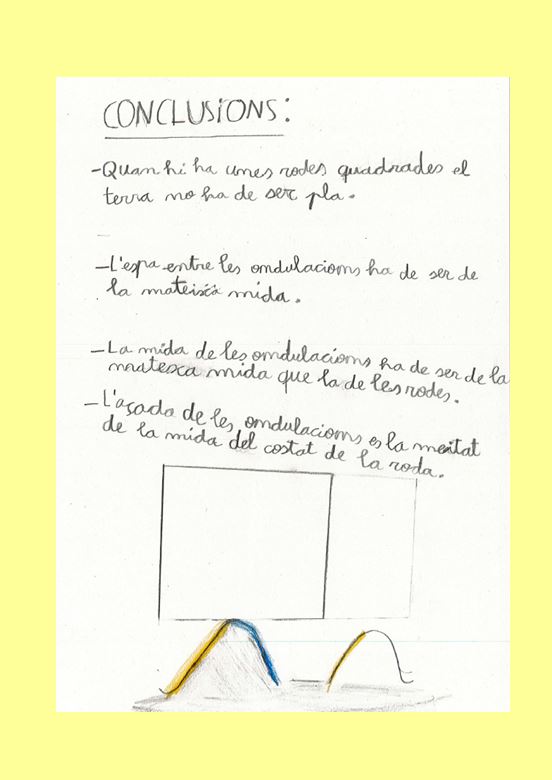 CONCLUSIONS:
-Quan hi ha unes rodes quadrades el
terra no ha de ser pla.
-L'espa entre les ondulacions ha de ser de
la mateixa mida.
-La mida de les ondulacions ha de ser de la
matexca mida que la de les rodes.
-L'açada de les ondulacions es la meitat
de la mida del costat de la roda.